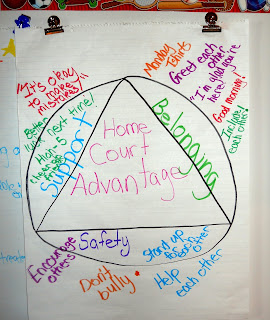 "It's okay
to make
mistakes!"
Better
luck next time!
High-5
Support
Monday
Tshirts
Greet each
other
"I'm glad you're
here"
Good morning!
Include
each other!
Belonging
Home
Court
Advantage
Safety
Encourage
others
Don't
bully.
Stand up
for each other
Help
each other